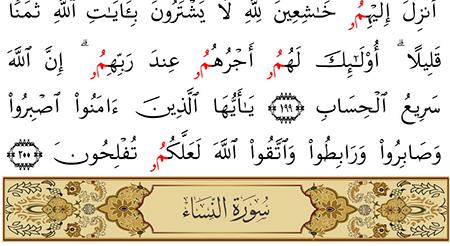 أُنزِلَ إِلَيْهِمُۥ خَٰشِعِينَ لِلَّهِ لَا يَشْتَرُونَ بِـَٔايَٰتِ ٱللَّهِ ثَمَنٗا
قَلِيلًاۚ أُوْلَٰٓئِكَ لَهُمُۥٓ أَجْرُهُمُۥ عِندَ رَبِّهِمُۥٓۗ إِنَّ ٱللَّهَ
سَرِيعُ ٱلْحِسَابِ ١٩٩ يَٰٓأَيُّهَا ٱلَّذِينَ ءَامَنُواْ ٱصْبِرُواْ
وَصَابِرُواْ وَرَابِطُواْ وَٱتَّقُواْ ٱللَّهَ لَعَلَّكُمُۥ تُفْلِحُونَ ٢٠٠
سُورَةُ النِّسَاءِ